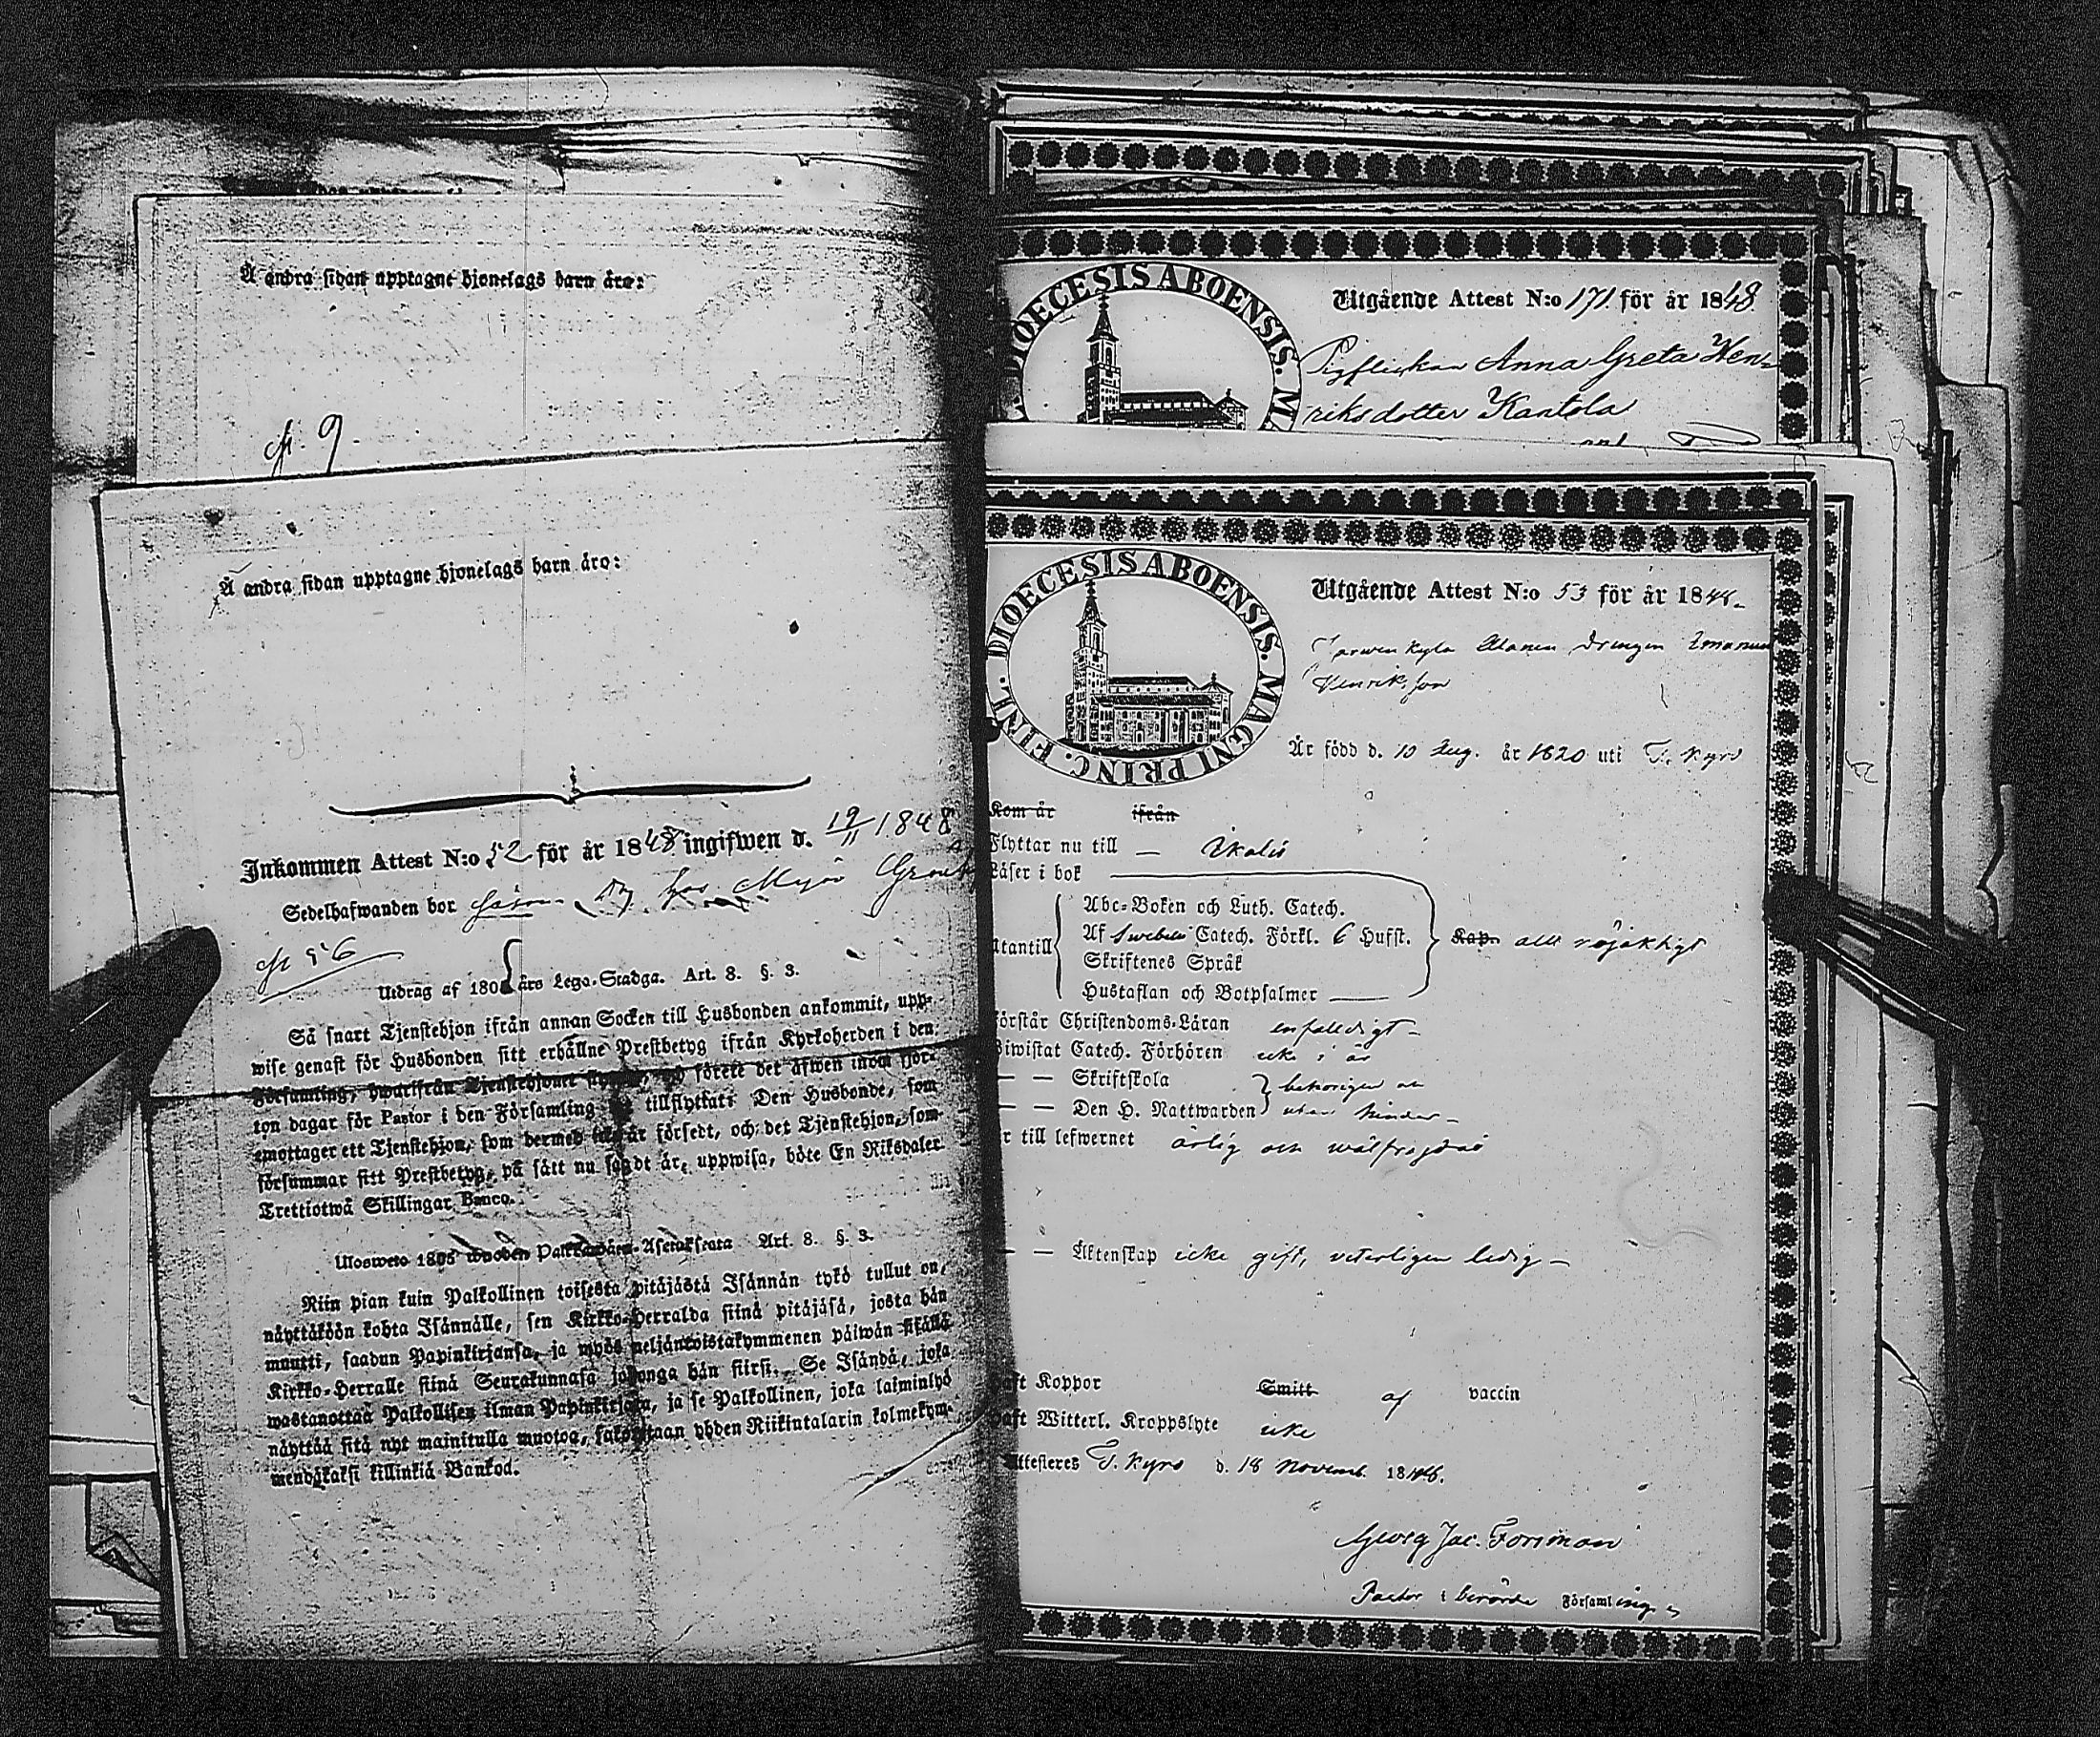 Å andra sidan upptagne hjonelags barn äro:
№ 9.
Å andra sidan upptagne hjonelags barn äro:
Inkommen Attest N:o 52 för år 1848 ingifwen d. 19/11 1848
Sedelhafwanden bor hos Major
№ 56
Utdrag af 1805 års Lego-Stadga. Art. 8. §. 3.
Så snart Tjenstehjon ifrån annan Socken till Husbonden ankommit, upp-
wise genast för Husbonden sitt erhållne Prestbetyg ifrån Kyrkoherden i den
Församling, hwarifrån Tjenstehjonet förete det äfwen inom fjor-
ton dagar för Pastor i den Församling tillflyttat. Den Husbonde, som
emottager ett Tjenstehjon, som dermed icke är försedt, och det Tjenstehjon, som
försummar sitt Prestbetyg, på sätt nu sagdt är, uppwisa, böte En Riksdaler
Trettiotwå Skillingar Banco.
Ulosweto 1805 wuoden Palkawäen-Asetuksesta Art. 8. §. 3.
Niin pian kuin Palkollinen toisesta pitäjästä Isännän tykö tullut on,
näyttäköön kohta Isännälle, sen Kirkko-Herralda siinä pitäjäsä, josta hän
muutti, saadun Papinkirjansa, ja myös neljäntoistakymmenen päiwän sisällä
Kirkko-Herralle siinä Seurakunnasa johonga hän siirsi. Se Isändä, joka
wastanottaa Palkollisen ilman Papinkirjata, ja se Palkollinen, joka laiminlyö
näyttää sitä nyt mainitulla muotoa, sakoitetaan yhden Riikintalarin kolmekym-
mendäkaksi killinkiä Bankod.
DIOECESIS ABOENSIS. M
Utgående Attest N:o 171. för år 1848.
Pigflickan Anna Greta Hen-
riksdotter Kantola
DIOECESIS ABOENSIS. MAGNI PRINC. FINL.
Utgående Attest N:o 53 för år 1848.
Drengen Emanuel
Henriksson
Är född d. 10 Aug. år 1820 uti T. Kyro
Kom år ifrån
Flyttar nu till — Ikalis
Läser i bok
Abc-Boken och Luth. Catech.
Af Swebelii Catech. Förkl. 6 Hufst.
utantill Kap. allt nöjaktigt
Skriftenes Språk
Hustaflan och Botpsalmer
Förstår Christendoms-Läran enfaldigt
Biwistat Catech. Förhören icke i år
— — Skriftskola behörigen och
— — Den H. Nattwarden utan hinder
Är till lefwernet ärlig och wälfrejdad
— — Äktenskap icke gift, veterligen ledig —
Haft Koppor Smitt af vaccin
Haft Witterl. Kroppslyte icke
Attesteres T. Kyro d. 18 Novemb. 1848.
Georg Jac. Forsman
Pastor i berörde Församling